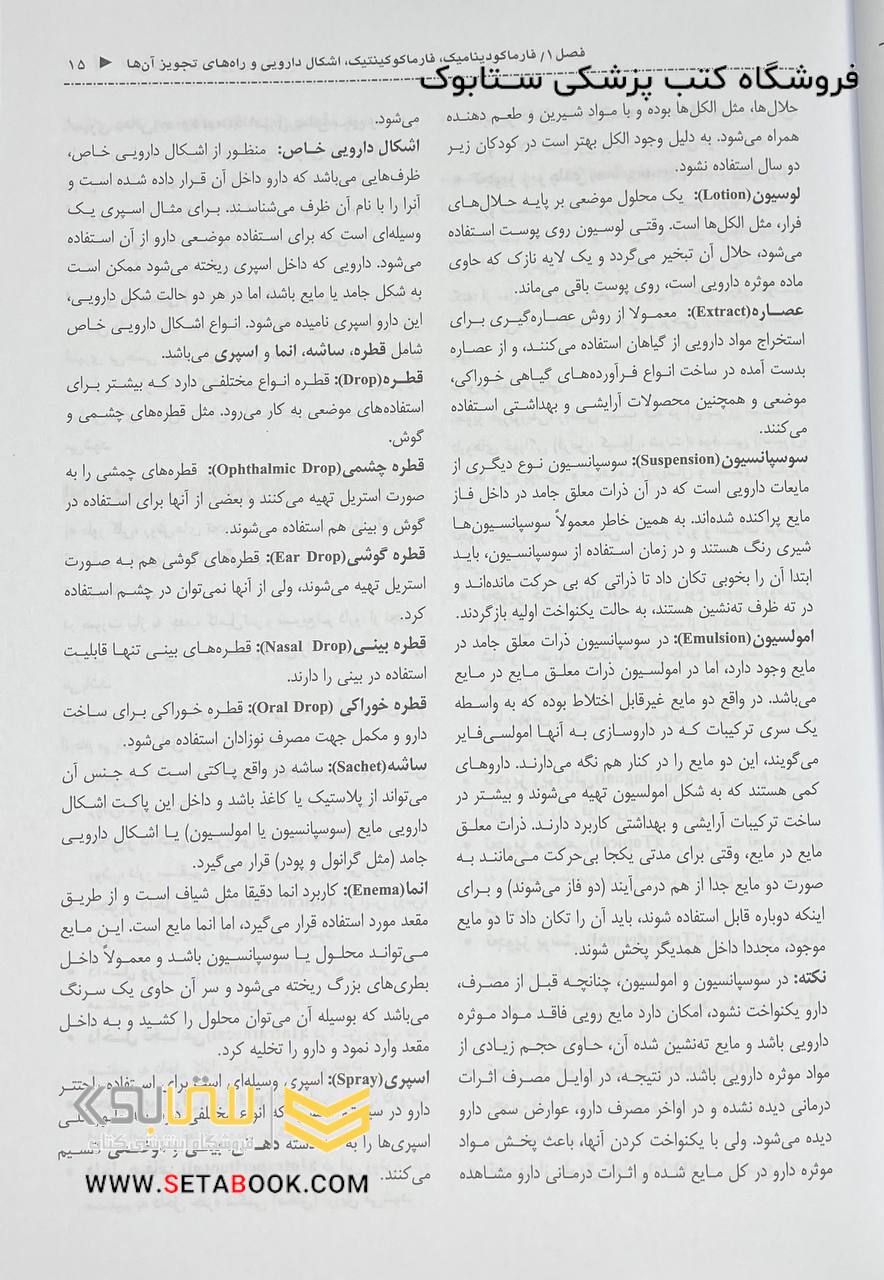 فصل ۱/ فارماکودینامیک، فارماکوکینتیک، اشکال دارویی و راه‌های تجویز آن‌ها ◀ ۱۵
فروشگاه کتب پزشکی ستابوک
حلال‌ها، مثل الکل‌ها بوده و با مواد شیرین و طعم دهنده
همراه می‌شود. به دلیل وجود الکل بهتر است در کودکان زیر
دو سال استفاده نشود.
لوسیون(Lotion): یک محلول موضعی بر پایه حلال‌های
فرار، مثل الکل‌ها است. وقتی لوسیون روی پوست استفاده
می‌شود، حلال آن تبخیر می‌گردد و یک لایه نازک که حاوی
ماده موثره دارویی است، روی پوست باقی می‌ماند.
عصاره(Extract): معمولا از روش عصاره‌گیری برای
استخراج مواد دارویی از گیاهان استفاده می‌کنند، و از عصاره
بدست آمده در ساخت انواع فرآورده‌های گیاهی خوراکی،
موضعی و همچنین محصولات آرایشی و بهداشتی استفاده
می‌کنند.
سوسپانسیون(Suspension): سوسپانسیون نوع دیگری از
مایعات دارویی است که در آن ذرات معلق جامد در داخل فاز
مایع پراکنده شده‌اند. به همین خاطر معمولاً سوسپانسیون‌ها
شیری رنگ هستند و در زمان استفاده از سوسپانسیون، باید
ابتدا آن را بخوبی تکان داد تا ذراتی که بی حرکت مانده‌اند و
در ته ظرف ته‌نشین هستند، به حالت یکنواخت اولیه بازگردند.
امولسیون(Emulsion): در سوسپانسیون ذرات معلق جامد در
مایع وجود دارد، اما در امولسیون ذرات معلق مایع در مایع
می‌باشد. در واقع دو مایع غیرقابل اختلاط بوده که به واسطه
یک سری ترکیبات که در داروسازی به آنها امولسی‌فایر
می‌گویند، این دو مایع را در کنار هم نگه می‌دارند. داروهای
کمی هستند که به شکل امولسیون تهیه می‌شوند و بیشتر در
ساخت ترکیبات آرایشی و بهداشتی کاربرد دارند. ذرات معلق
مایع در مایع، وقتی برای مدتی یکجا بی‌حرکت می‌مانند به
صورت دو مایع جدا از هم درمی‌آیند (دو فاز می‌شوند) و برای
اینکه دوباره قابل استفاده شوند، باید آن را تکان داد تا دو مایع
موجود، مجددا داخل همدیگر پخش شوند.
نکته: در سوسپانسیون و امولسیون، چنانچه قبل از مصرف،
دارو یکنواخت نشود، امکان دارد مایع رویی فاقد مواد موثره
دارویی باشد و مایع ته‌نشین شده آن، حاوی حجم زیادی از
مواد موثره دارویی باشد. در نتیجه، در اوایل مصرف اثرات
درمانی دیده نشده و در اواخر مصرف دارو، عوارض سمی دارو
دیده می‌شود. ولی با یکنواخت کردن آنها، باعث پخش مواد
موثره دارو در کل مایع شده و اثرات درمانی دارو مشاهده
می‌شود.
اشکال دارویی خاص: منظور از اشکال دارویی خاص،
ظرف‌هایی می‌باشد که دارو داخل آن قرار داده شده است و
آنرا را با نام آن ظرف می‌شناسند. برای مثال اسپری یک
وسیله‌ای است که برای استفاده موضعی دارو از آن استفاده
می‌شود. دارویی که داخل اسپری ریخته می‌شود ممکن است
به شکل جامد یا مایع باشد، اما در هر دو حالت شکل دارویی،
این دارو اسپری نامیده می‌شود. انواع اشکال دارویی خاص
شامل قطره، ساشه، انما و اسپری می‌باشد.
قطره(Drop): قطره انواع مختلفی دارد که بیشتر برای
استفاده‌های موضعی به کار می‌رود. مثل قطره‌های چشمی و
گوش.
قطره چشمی(Ophthalmic Drop): قطره‌های چمشی را به
صورت استریل تهیه می‌کنند و بعضی از آنها برای استفاده در
گوش و بینی هم استفاده می‌شوند.
قطره گوشی(Ear Drop): قطره‌های گوشی هم به صورت
استریل تهیه می‌شوند، ولی از آنها نمی‌توان در چشم استفاده
کرد.
قطره بینی(Nasal Drop): قطره‌های بینی تنها قابلیت
استفاده در بینی را دارند.
قطره خوراکی (Oral Drop): قطره خوراکی برای ساخت
دارو و مکمل جهت مصرف نوزادان استفاده می‌شود.
ساشه(Sachet): ساشه در واقع پاکتی است که جنس آن
می‌تواند از پلاستیک یا کاغذ باشد و داخل این پاکت اشکال
دارویی مایع (سوسپانسیون یا امولسیون) یا اشکال دارویی
جامد (مثل گرانول و پودر) قرار می‌گیرد.
انما(Enema): کاربرد انما دقیقا مثل شیاف است و از طریق
مقعد مورد استفاده قرار می‌گیرد، اما انما مایع است. این مایع
می‌تواند محلول یا سوسپانسیون باشد و معمولاً داخل
بطری‌های بزرگ ریخته می‌شود و سر آن حاوی یک سرنگ
می‌باشد که بوسیله آن می‌توان محلول را کشید و به داخل
مقعد وارد نمود و دارو را تخلیه کرد.
اسپری(Spray): اسپری وسیله‌ای است برای استفاده راحتتر
دارو در که انواع مختلفی
اسپری‌ها را به دسته
می‌کنند.
ستابوک
فروشگاه اینترنتی کتاب
WWW.SETABOOK.COM